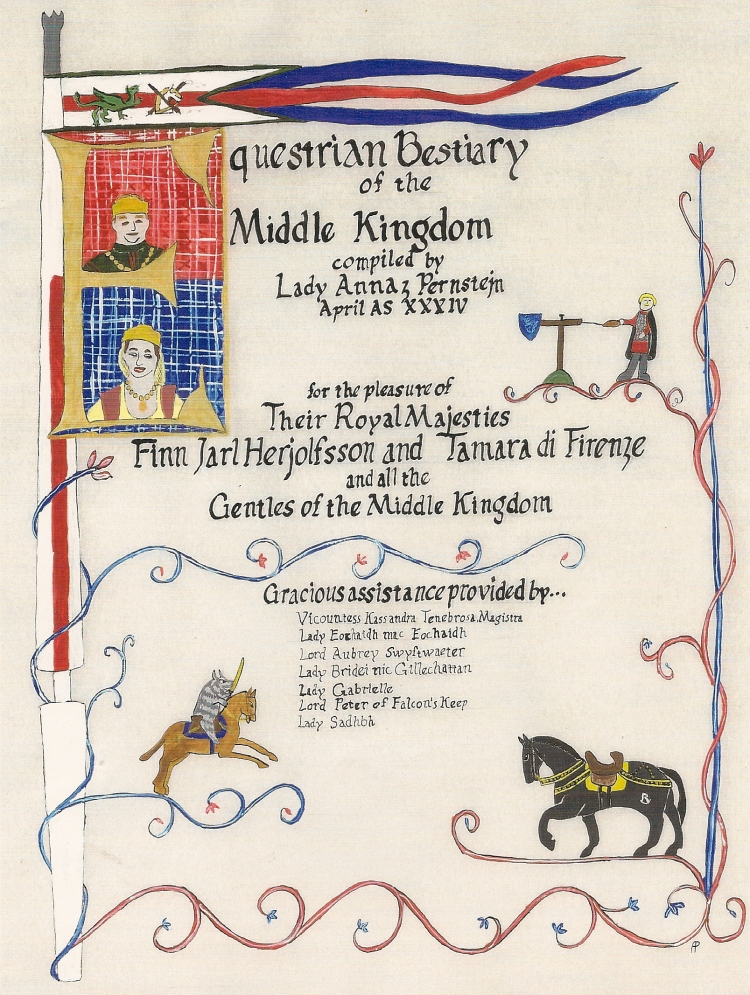 Equestrian Bestiary
of the
Middle Kingdom
compiled by
Lady Anna z Pernstejn
April AS XXXIV
for the pleasure of
Their Royal Majesties
Finn Jarl Herjolfsson and Tamara di Firenze
and all the
Gentles of the Middle Kingdom
Gracious assistance provided by...
Vicountess Kassandra Tenebrosa, Magistra
Lady Eochaidh mac Eochaidh
Lord Aubrey Swyftwaeter
Lady Bridei nic Gillechattan
Lady Gabrielle
Lord Peter of Falcon's Keep
Lady Sadhbh